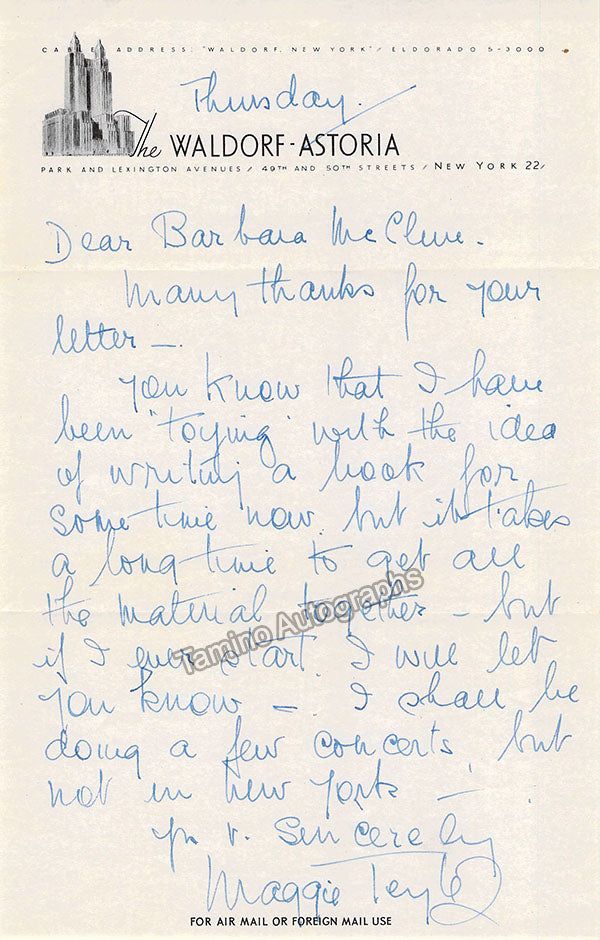 CABLE ADDRESS: "WALDORF, NEW YORK" / ELDORADO 5-3000
Thursday.
The WALDORF-ASTORIA
PARK AND LEXINGTON AVENUES / 49TH AND 50TH STREETS / NEW YORK 22/
Dear Barbara McClure.
Many thanks for your
letter —.
You know that I have
been "toying" with the idea
of writing a book for
some time now, but it takes
a long time to get all
the material together – but
if I ever start, I will let
you know –. I shall be
doing a few concerts, but
not in New York —.
Yrs v. Sincerely
Maggie Teyte
Tamino Autographs
FOR AIR MAIL OR FOREIGN MAIL USE